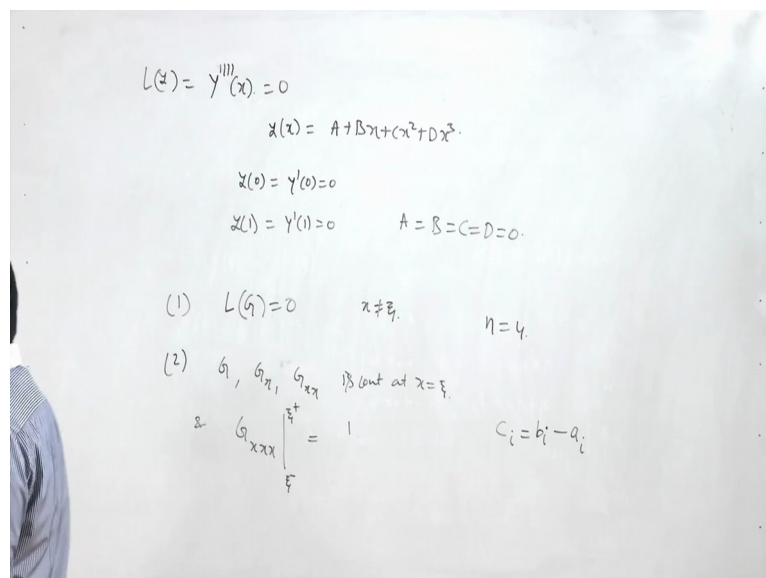 L(y) = y''''(x) = 0
y(x) = A+Bx+Cx²+Dx³.
y(0) = y'(0)=0
y(1) = y'(1)=0 A=B=C=D=0.
(1) L(G)=0 x≠ξ. n=4.
(2) G, Gx, Gxx is cont at x=ξ.
& Gxxx |ξ⁻ ξ⁺ = 1 Ci=bi-ai